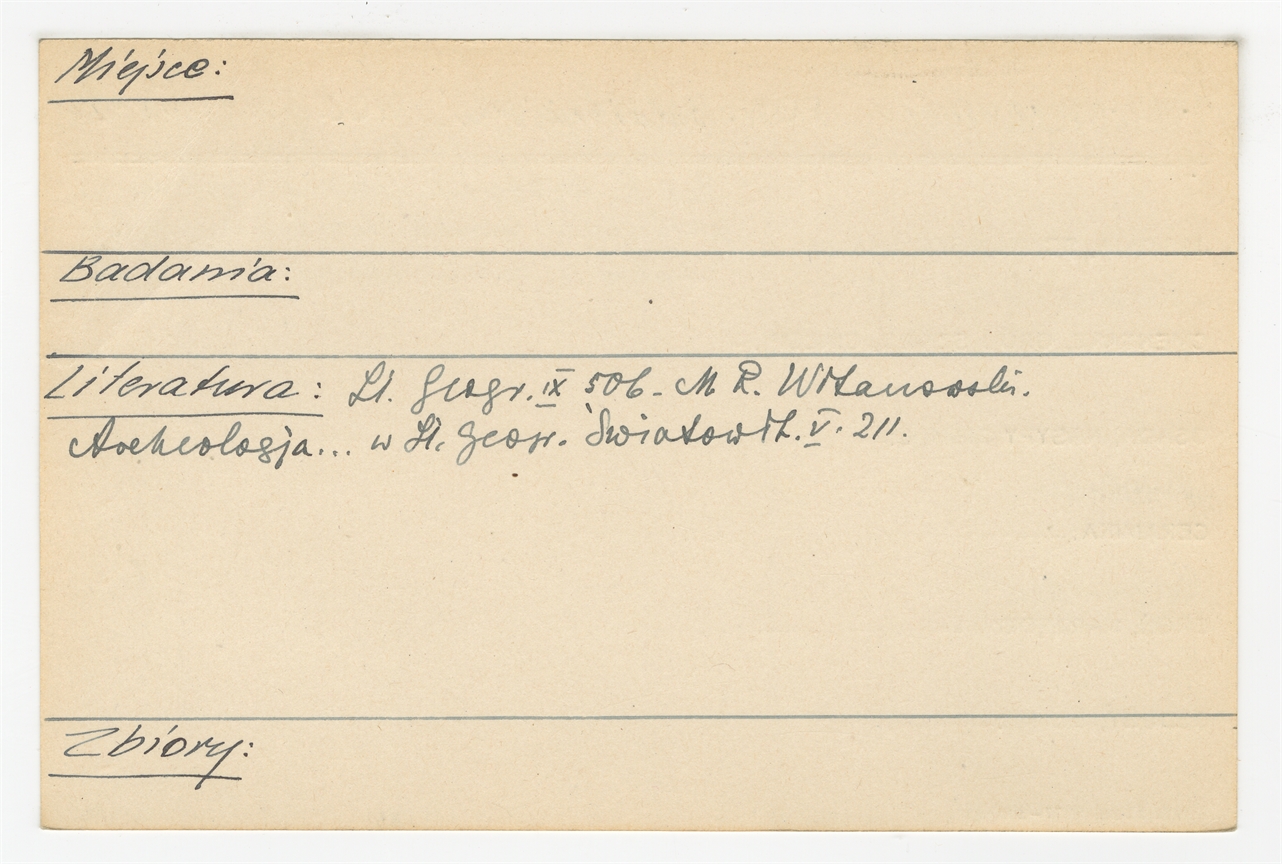 Miejsce:
Badania:
Literatura: Sł. Geogr. IX 506 - M R. Witanowski.
Archeologja... w Sł. Geogr. Światowit. V. 211.
Zbiory: